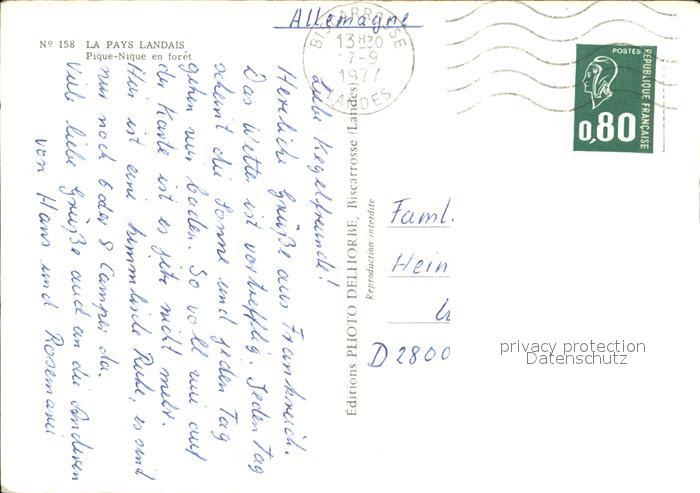 Allemagne
Nº 158 LA PAYS LANDAIS
Pique-Nique en forêt
BISCARROSSE
13 H30
7-9
1977
LANDES
POSTES
REPUBLIQUE FRANÇAISE
0,80
Liebe Kegelfreunde!
Herzliche Grüße aus Frankreich.
Das Wetter ist vortrefflig. Jeden Tag
scheint die Sonne und jeden Tag
gehen wir baden. So voll wie auf
der Karte ist es jetz nicht mehr.
Hier ist eine himmlische Ruhe, es sind
nur noch 6 oder 8 Camper da.
Viele liebe Grüße auch an die Anderen
von Hans und Rosemarie
Éditions PHOTO DELHORBE, Biscarrosse (Landes)
Reproduction interdite
Faml.
Hein
D 2800
privacy protection
Datenschutz